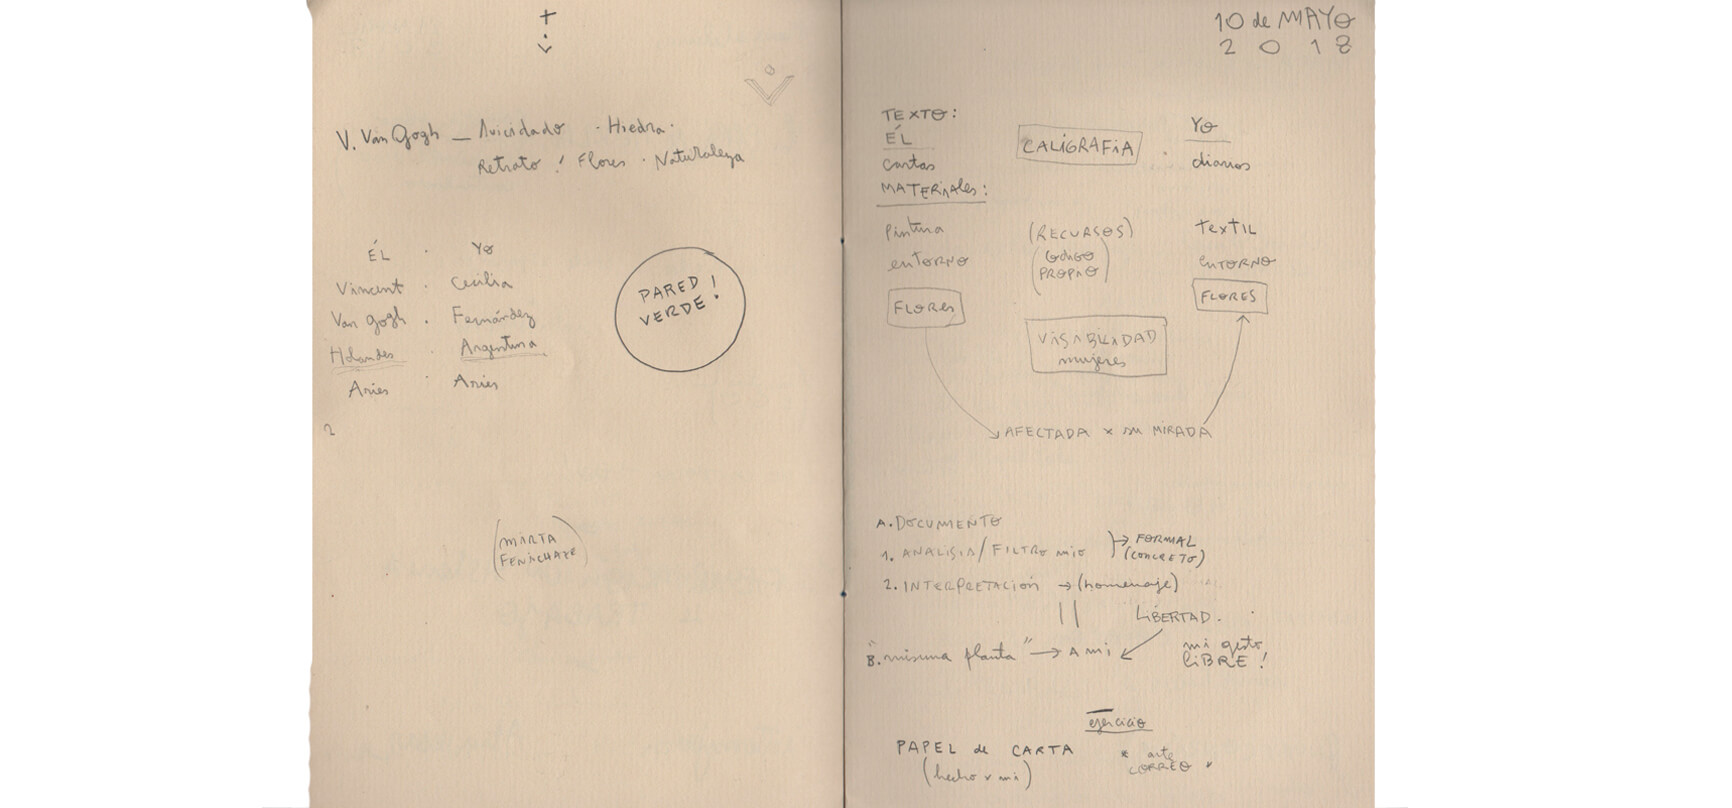 V. Van Gogh — Suicidado · Hiedra ·
Retrato ! Flores · Naturaleza
ÉL · Yo
Vincent · Cecilia
Van Gogh · Fernández
Holandes · Argentina
Aries · Aries
PARED !
VERDE !
2
(MARTA
10 de MAYO
2018
TEXTO:
ÉL
cartas
CALIGRAFIA
Yo
diarios
MATERIALES:
Pintura (RECURSOS) TEXTIL
entorno (codigo entorno
PROPIO)
FLORES FLORES
VISABILIDAD
mujeres
AFECTADA x su MIRADA
A. DOCUMENTO
1. ANALISIS / FILTRO mio → FORMAL
(CONCRETO)
2. INTERPRETACION → (homenaje)
|| LIBERTAD.
B. "misma planta" → A mi
mi gesto
LIBRE !
ejercicio
PAPEL de CARTA
(hecho x mi)
* arte
CORREO *